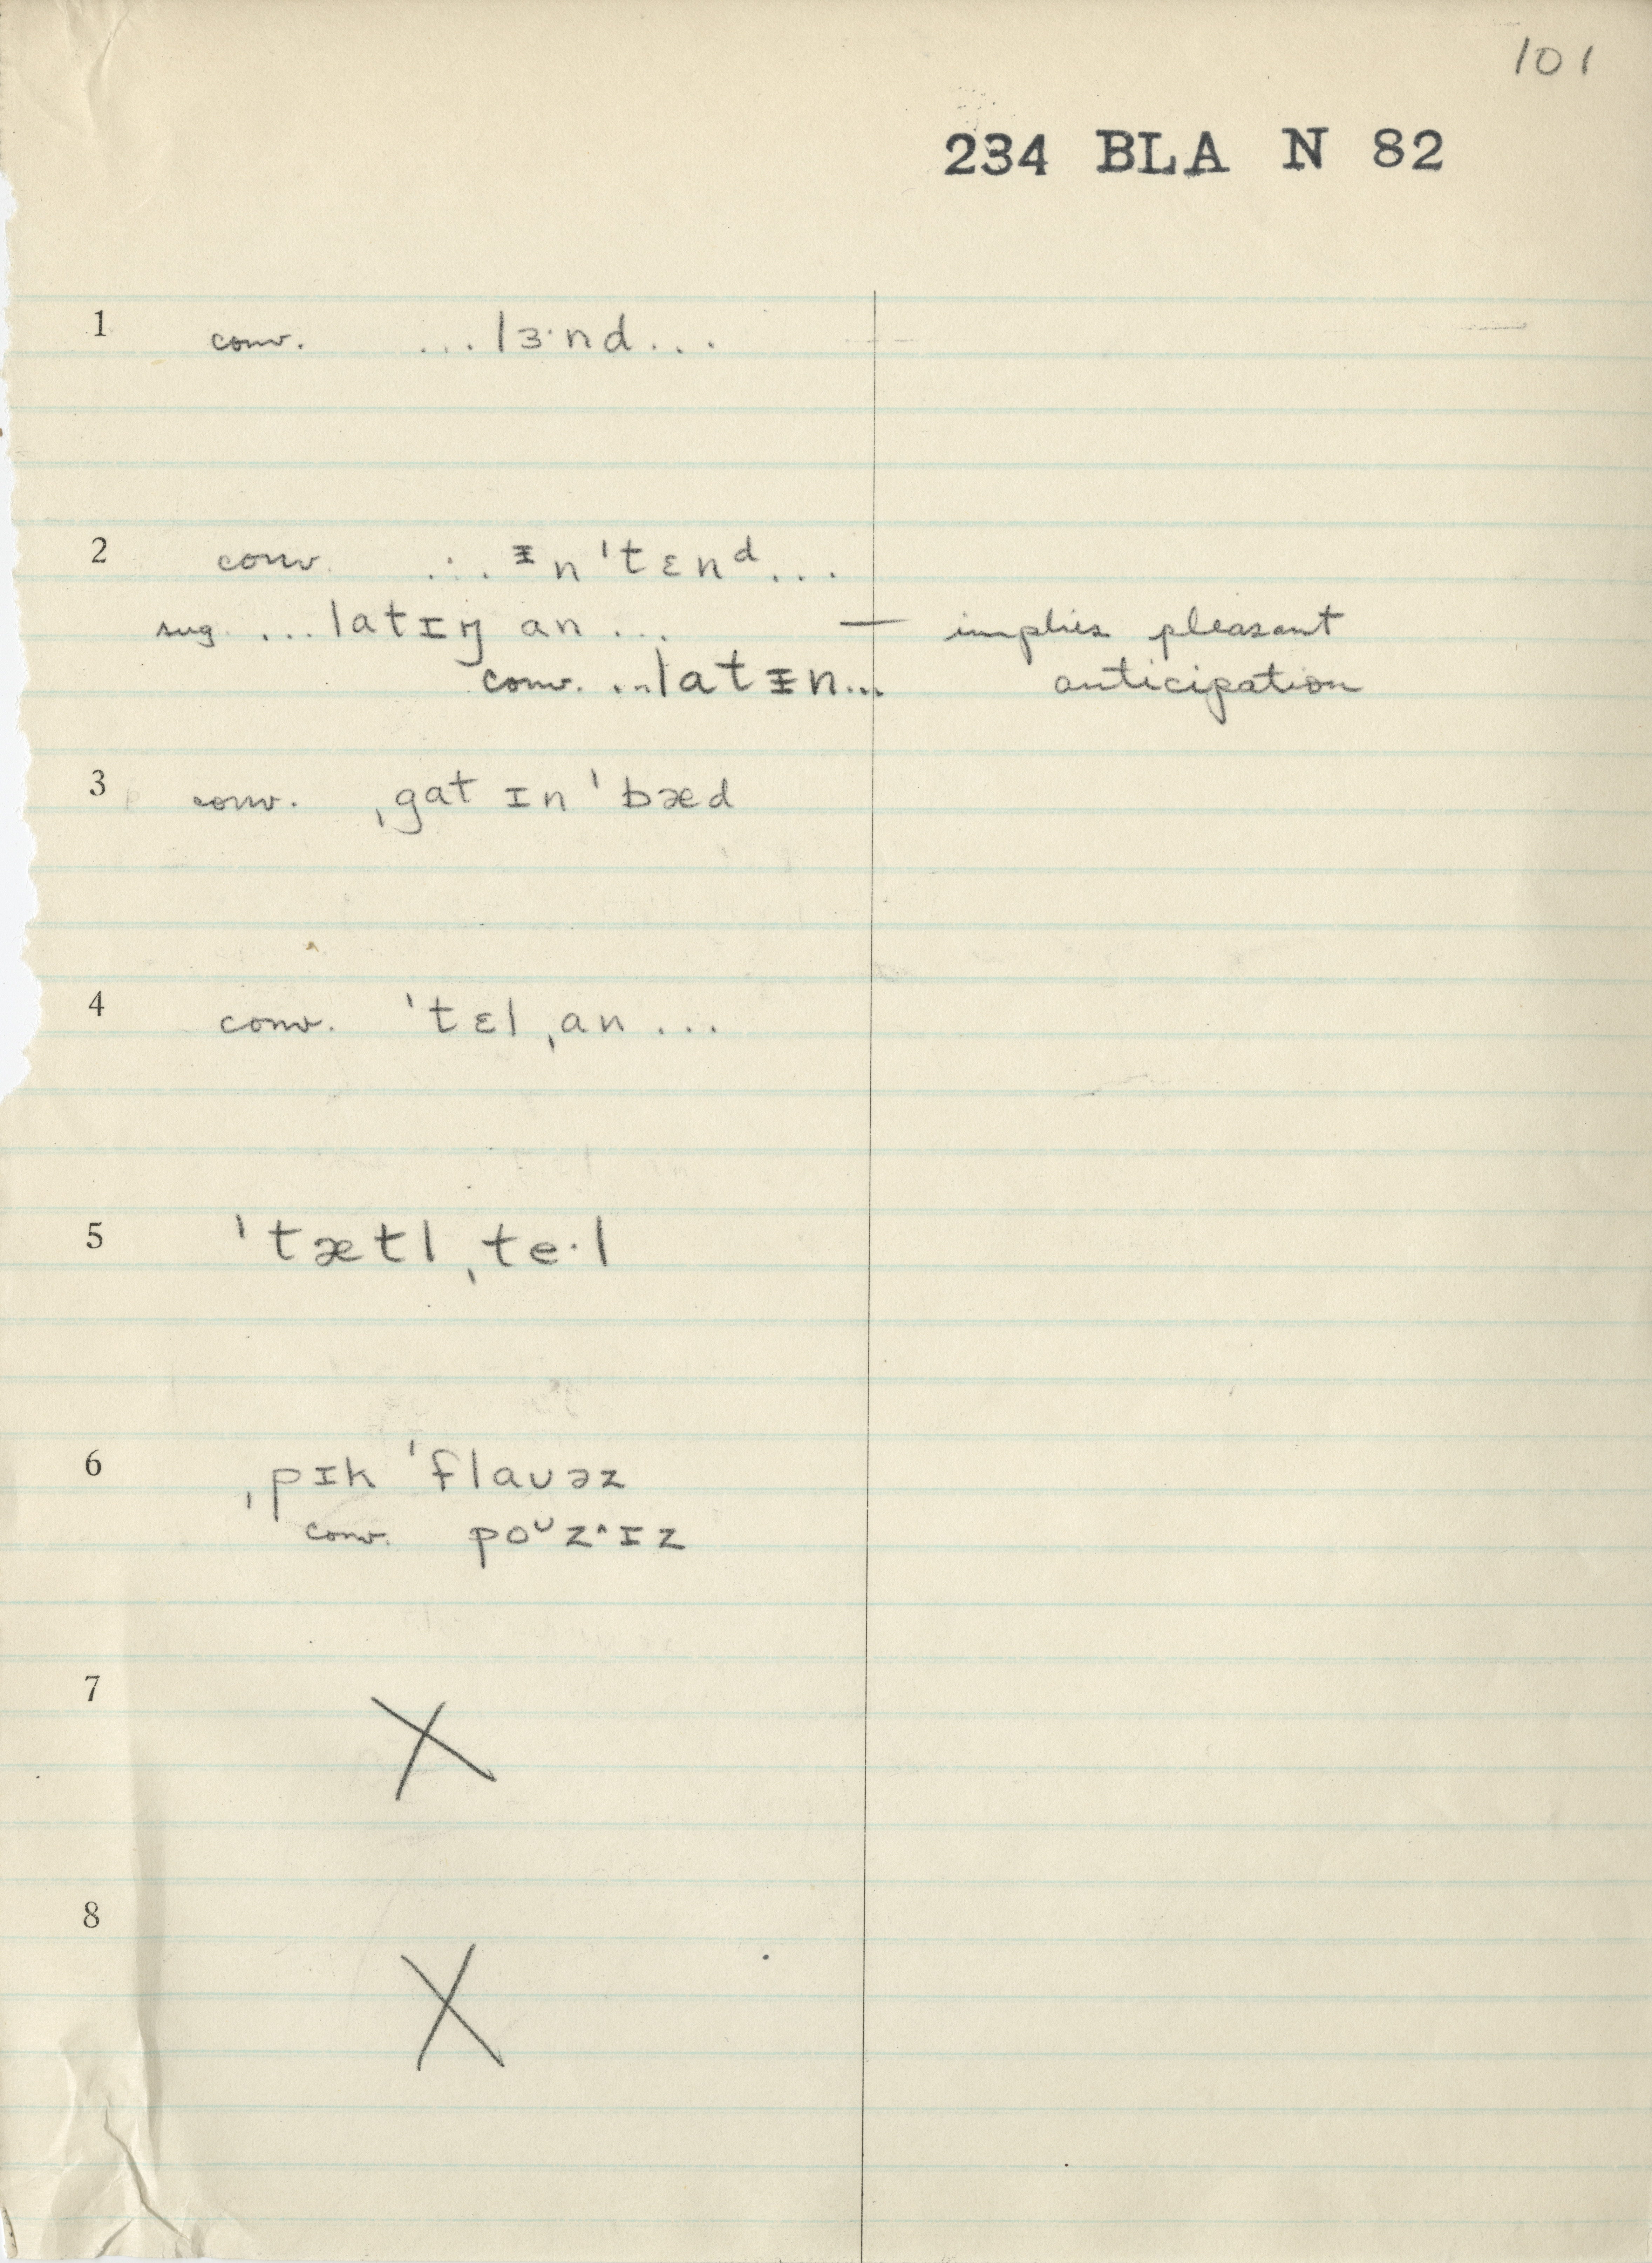 101
234 BLA N 82
1 conv. ...lɜ·nd...
2 conv. ... ᵻn ˈtɛnᵈ...
sug. ...latɪŋ an ... — implies pleasant
conv. ...latᵻn... anticipation
3 conv. ˌgat ɪn ˈbæd
4 conv. ˈtɛl ˌan ...
5 ˈtætl ˌte·l
6 ˌpɪk ˈflaʊəz
conv. poᶷz^ɪz
7 X
8 X